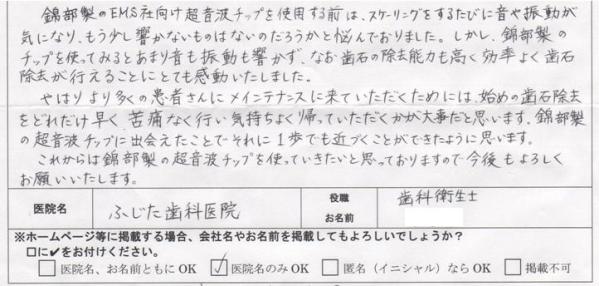 錦部製のEMS社向け超音波チップを使用する前は、スケーリングをするたびに音や振動が
気になり、もう少し響かないものはないのだろうかと悩んでおりました。しかし、錦部製の
チップを使ってみるとあまり音も振動も響かず、なお歯石の除去能力も高く効率よく歯石
除去が行えることにとても感動いたしました。
やはりより多くの患者さんにメインテナンスに来ていただくためには、始めの歯石除去
をどれだけ早く苦痛なく行い気持ちよく帰っていただくかが大事だと思います。錦部製
の超音波チップに出会えたことでそれに1歩でも近づくことができたように思います。
これからは錦部製の超音波チップを使っていきたいと思っておりますので今後もよろしく
お願いいたします。
医院名 ふじた歯科医院 役職 お名前 歯科衛生士
※ホームページ等に掲載する場合、会社名やお名前を掲載してもよろしいでしょうか?
□に✔をお付けください。
□医院名、お名前ともにOK ☑医院名のみOK □匿名（イニシャル）ならOK □掲載不可